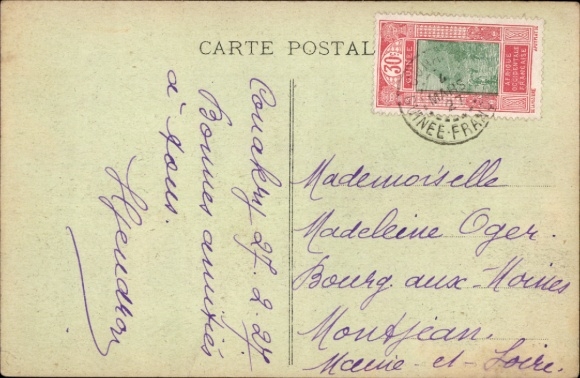 CARTE POSTALE
30c
GUINÉE
AFRIQUE
OCCIDENTALE
FRANÇAISE
4
MARS
27
GUINÉE-FRANÇ
Conakry 27.2.27
Bonnes amitiés
à tous.
Mademoiselle
Madeleine Oger.
Bourg-aux-Moines
Montjean.
Maine-et-Loire.